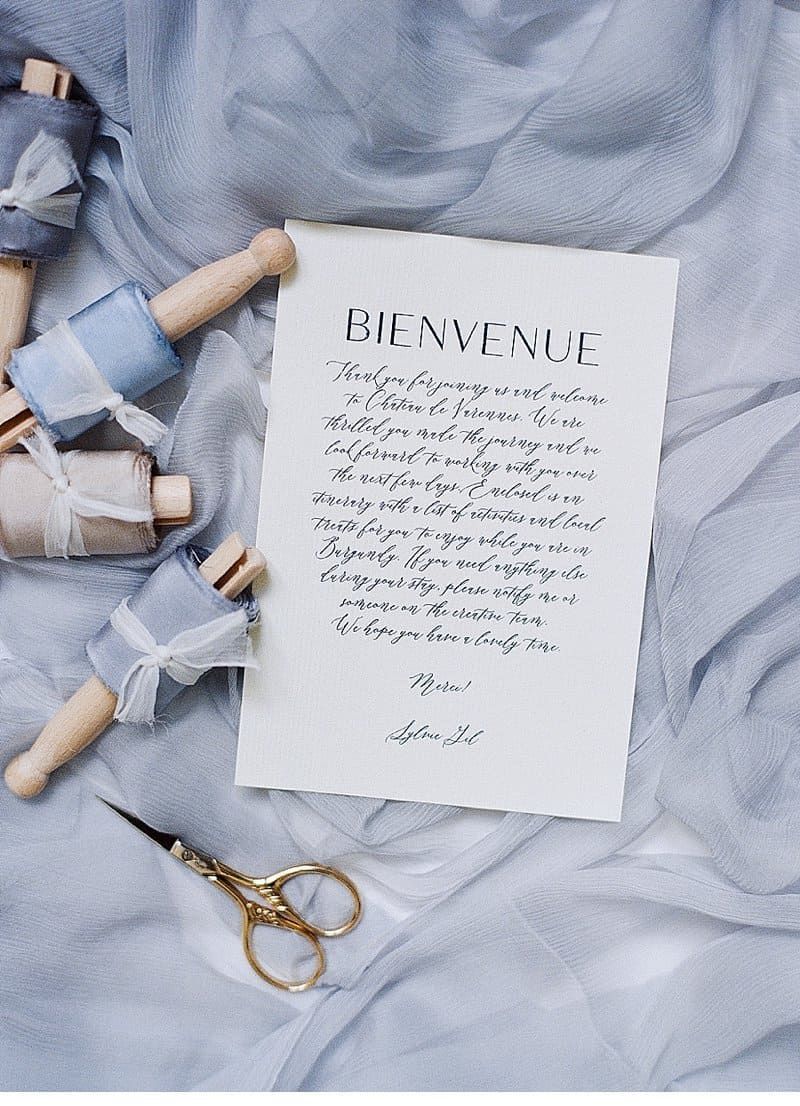 BIENVENUE
Thank you for joining us and welcome
to Chateau de Varennes. We are
thrilled you made the journey and we
look forward to working with you over
the next few days. Enclosed is an
itinerary with a list of activities and local
treats for you to enjoy while you are in
Burgundy. If you need anything else
during your stay, please notify me or
someone on the creative team.
We hope you have a lovely time.
Merci!
Sylvie Gil